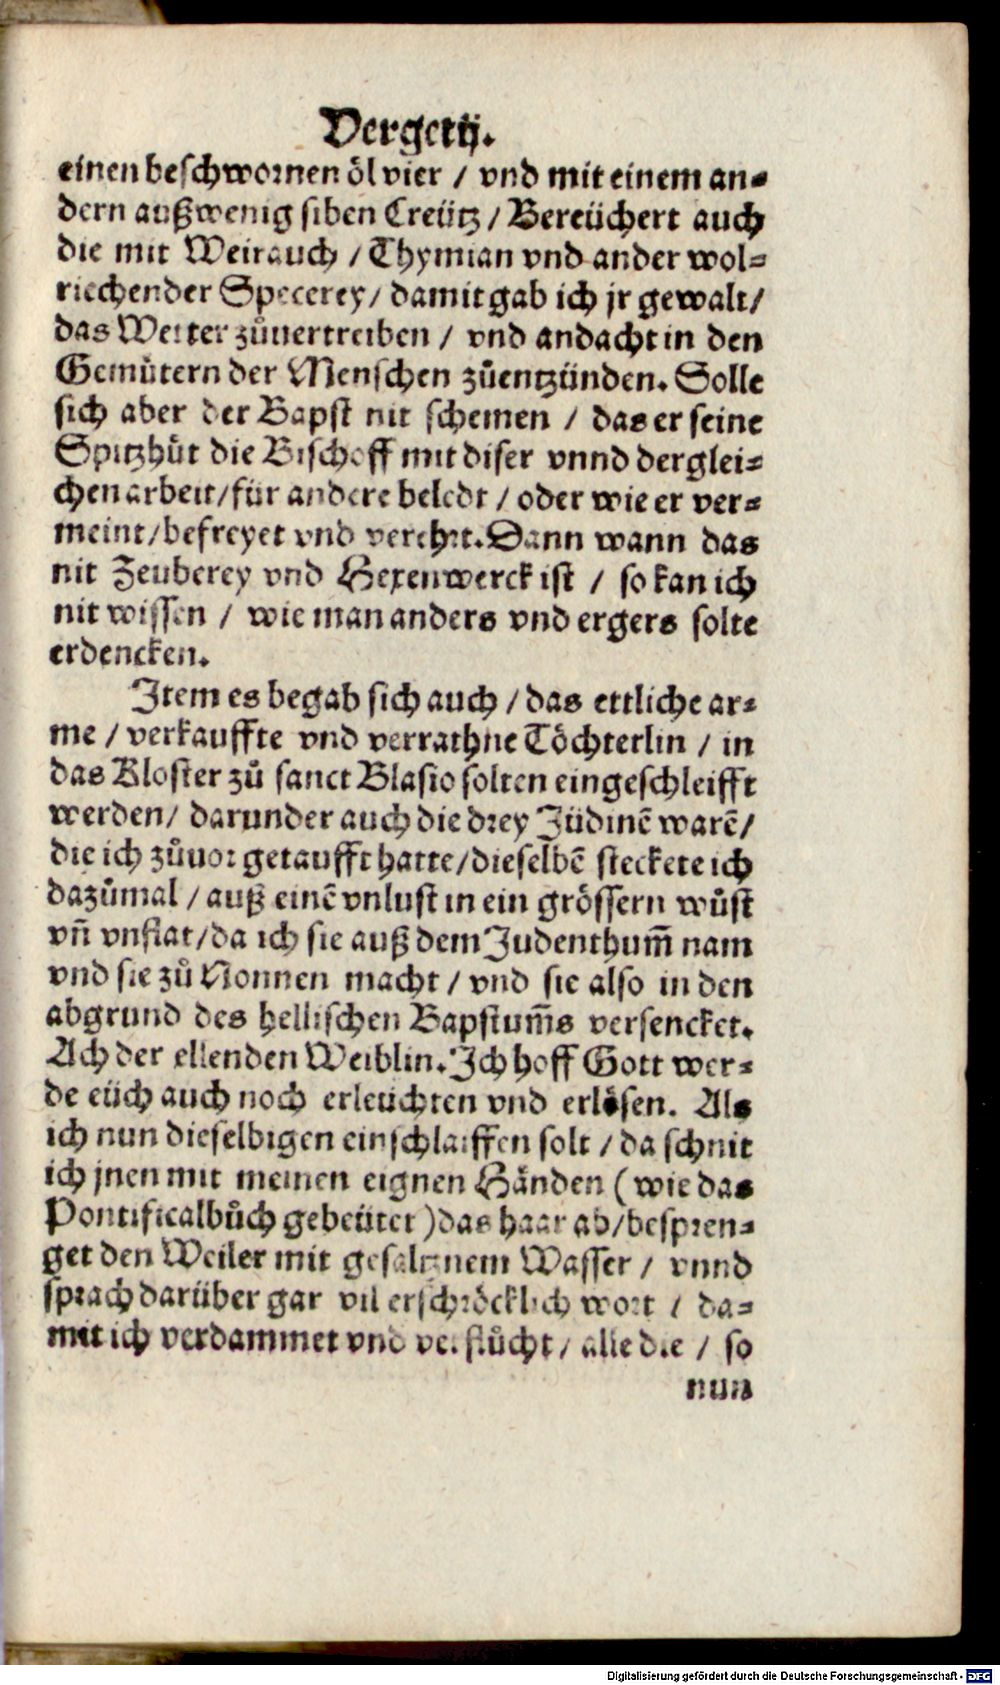 Vergetij.
einen beschwornen öl vier / vnd mit einem an⸗
dern außwenig siben Creütz / Bereüchert auch
die mit Weirauch / Thymian vnd ander wol⸗
riechender Specerey / damit gab ich jr gewalt /
das Wetter zůuertreiben / vnd andacht in den
Gemůtern der Menschen zůentzünden. Solle
sich aber der Bapst nit schemen / das er seine
Spitzhůt die Bischoff mit diser vnnd derglei⸗
chen arbeit / für andere beledt / oder wie er ver⸗
meint / befreyet vnd verehrt. Dann wann das
nit Zeuberey vnd Hexenwerck ist / so kan ich
nit wissen / wie man anders vnd ergers solte
erdencken.
Item es begab sich auch / das ettliche ar⸗
me / verkauffte vnd verrathne Töchterlin / in
das Kloster zů sanct Blasio solten eingeschleifft
werden / darunder auch die drey Jüdinē warē /
die ich zůuor getaufft hatte / dieselbē steckete ich
dazůmal / auß einē vnlust in ein grössern wůst
vn̄ vnflat / da ich sie auß dem Judenthum̄ nam
vnd sie zů Nonnen macht / vnd sie also in den
abgrund des hellischen Bapstum̄s versencket.
Ach der ellenden Weiblin. Ich hoff Gott wer⸗
de eüch auch noch erleüchten vnd erlösen. Als
ich nun dieselbigen einschlaiffen solt / da schnit
ich jnen mit meinen eignen Händen ( wie das
Pontificalbůch gebeütet ) das haar ab / bespren⸗
get den Weiler mit gesaltznem Wasser / vnnd
sprach darüber gar vil erschröcklich wort / da⸗
mit ich verdammet vnd verflůcht / alle die / so
nun
Digitalisierung gefördert durch die Deutsche Forschungsgemeinschaft - DFG